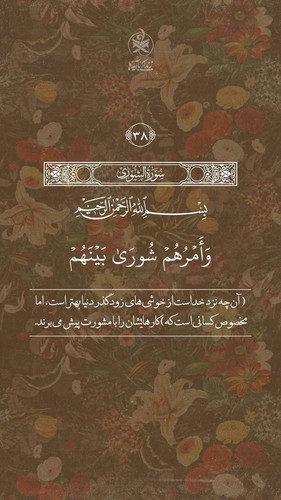 ۳۸
سورة الشوری
بسم الله الرحمن الرحیم
وَأَمۡرُهُمۡ شُورَىٰ بَيۡنَهُمۡ
(آن‌چه نزد خداست از خوشی‌های زودگذر دنیا بهتر است، اما
مخصوص کسانی است که) کارهایشان را با مشورت پیش می‌برند.